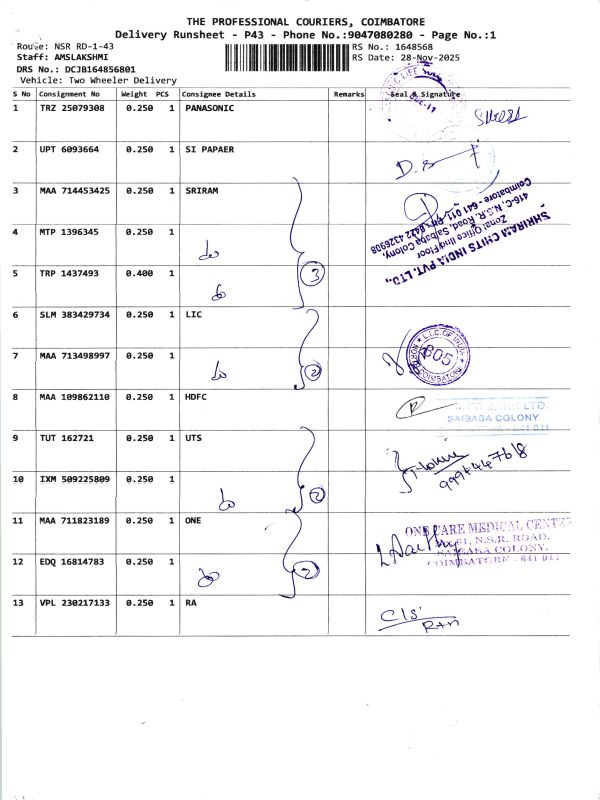 THE PROFESSIONAL COURIERS, COIMBATORE
Delivery Runsheet - P43 - Phone No.:9047080280 - Page No.:1
Route: NSR RD-1-43 RS No.: 1648568
Staff: AMSLAKSHMI RS Date: 28-Nov-2025
DRS No.: DCJB164856801
Vehicle: Two Wheeler Delivery
S No Consignment No Weight PCS Consignee Details Remarks Seal & Signature
1 TRZ 25079308 0.250 1 PANASONIC
2 UPT 6093664 0.250 1 SI PAPAER
3 MAA 714453425 0.250 1 SRIRAM
SHRIRAM CHITS INDIA PVT. LTD.,
Zonal Office IInd Floor
416-C, N.S.R. Road, Saibaba Colony,
4 MTP 1396345 0.250 1 do
5 TRP 1437493 0.400 1 do 3
6 SLM 383429734 0.250 1 LIC
L.I.C. OF INDIA
805
COIMBATORE
NORTH
7 MAA 713498997 0.250 1 do 2
8 MAA 109862110 0.250 1 HDFC
SAIBABA COLONY
9 TUT 162721 0.250 1 UTS
10 IXM 509225809 0.250 1 do 2
11 MAA 711823189 0.250 1 ONE
ONE CARE MEDICAL CENTER
N.S.R. ROAD,
SAIBABA COLONY,
COIMBATORE - 641 011
12 EDQ 16814783 0.250 1 do 2
13 VPL 230217133 0.250 1 RA